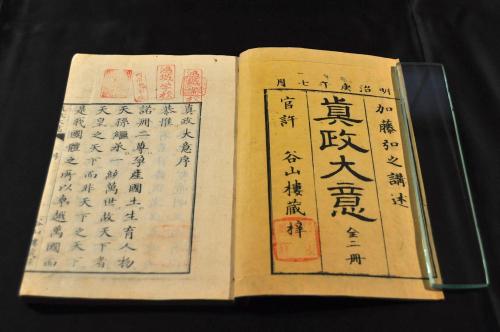 明治庚午七月
加藤弘之講述
眞政大意
全二冊
官許　谷山樓藏梓
眞政大意序
恭惟
諾冊二尊孕産國土生育人物
天孫繼承一統萬世故天下者
天皇之天下而非天下之天下
是我國體之所以卓越萬國而